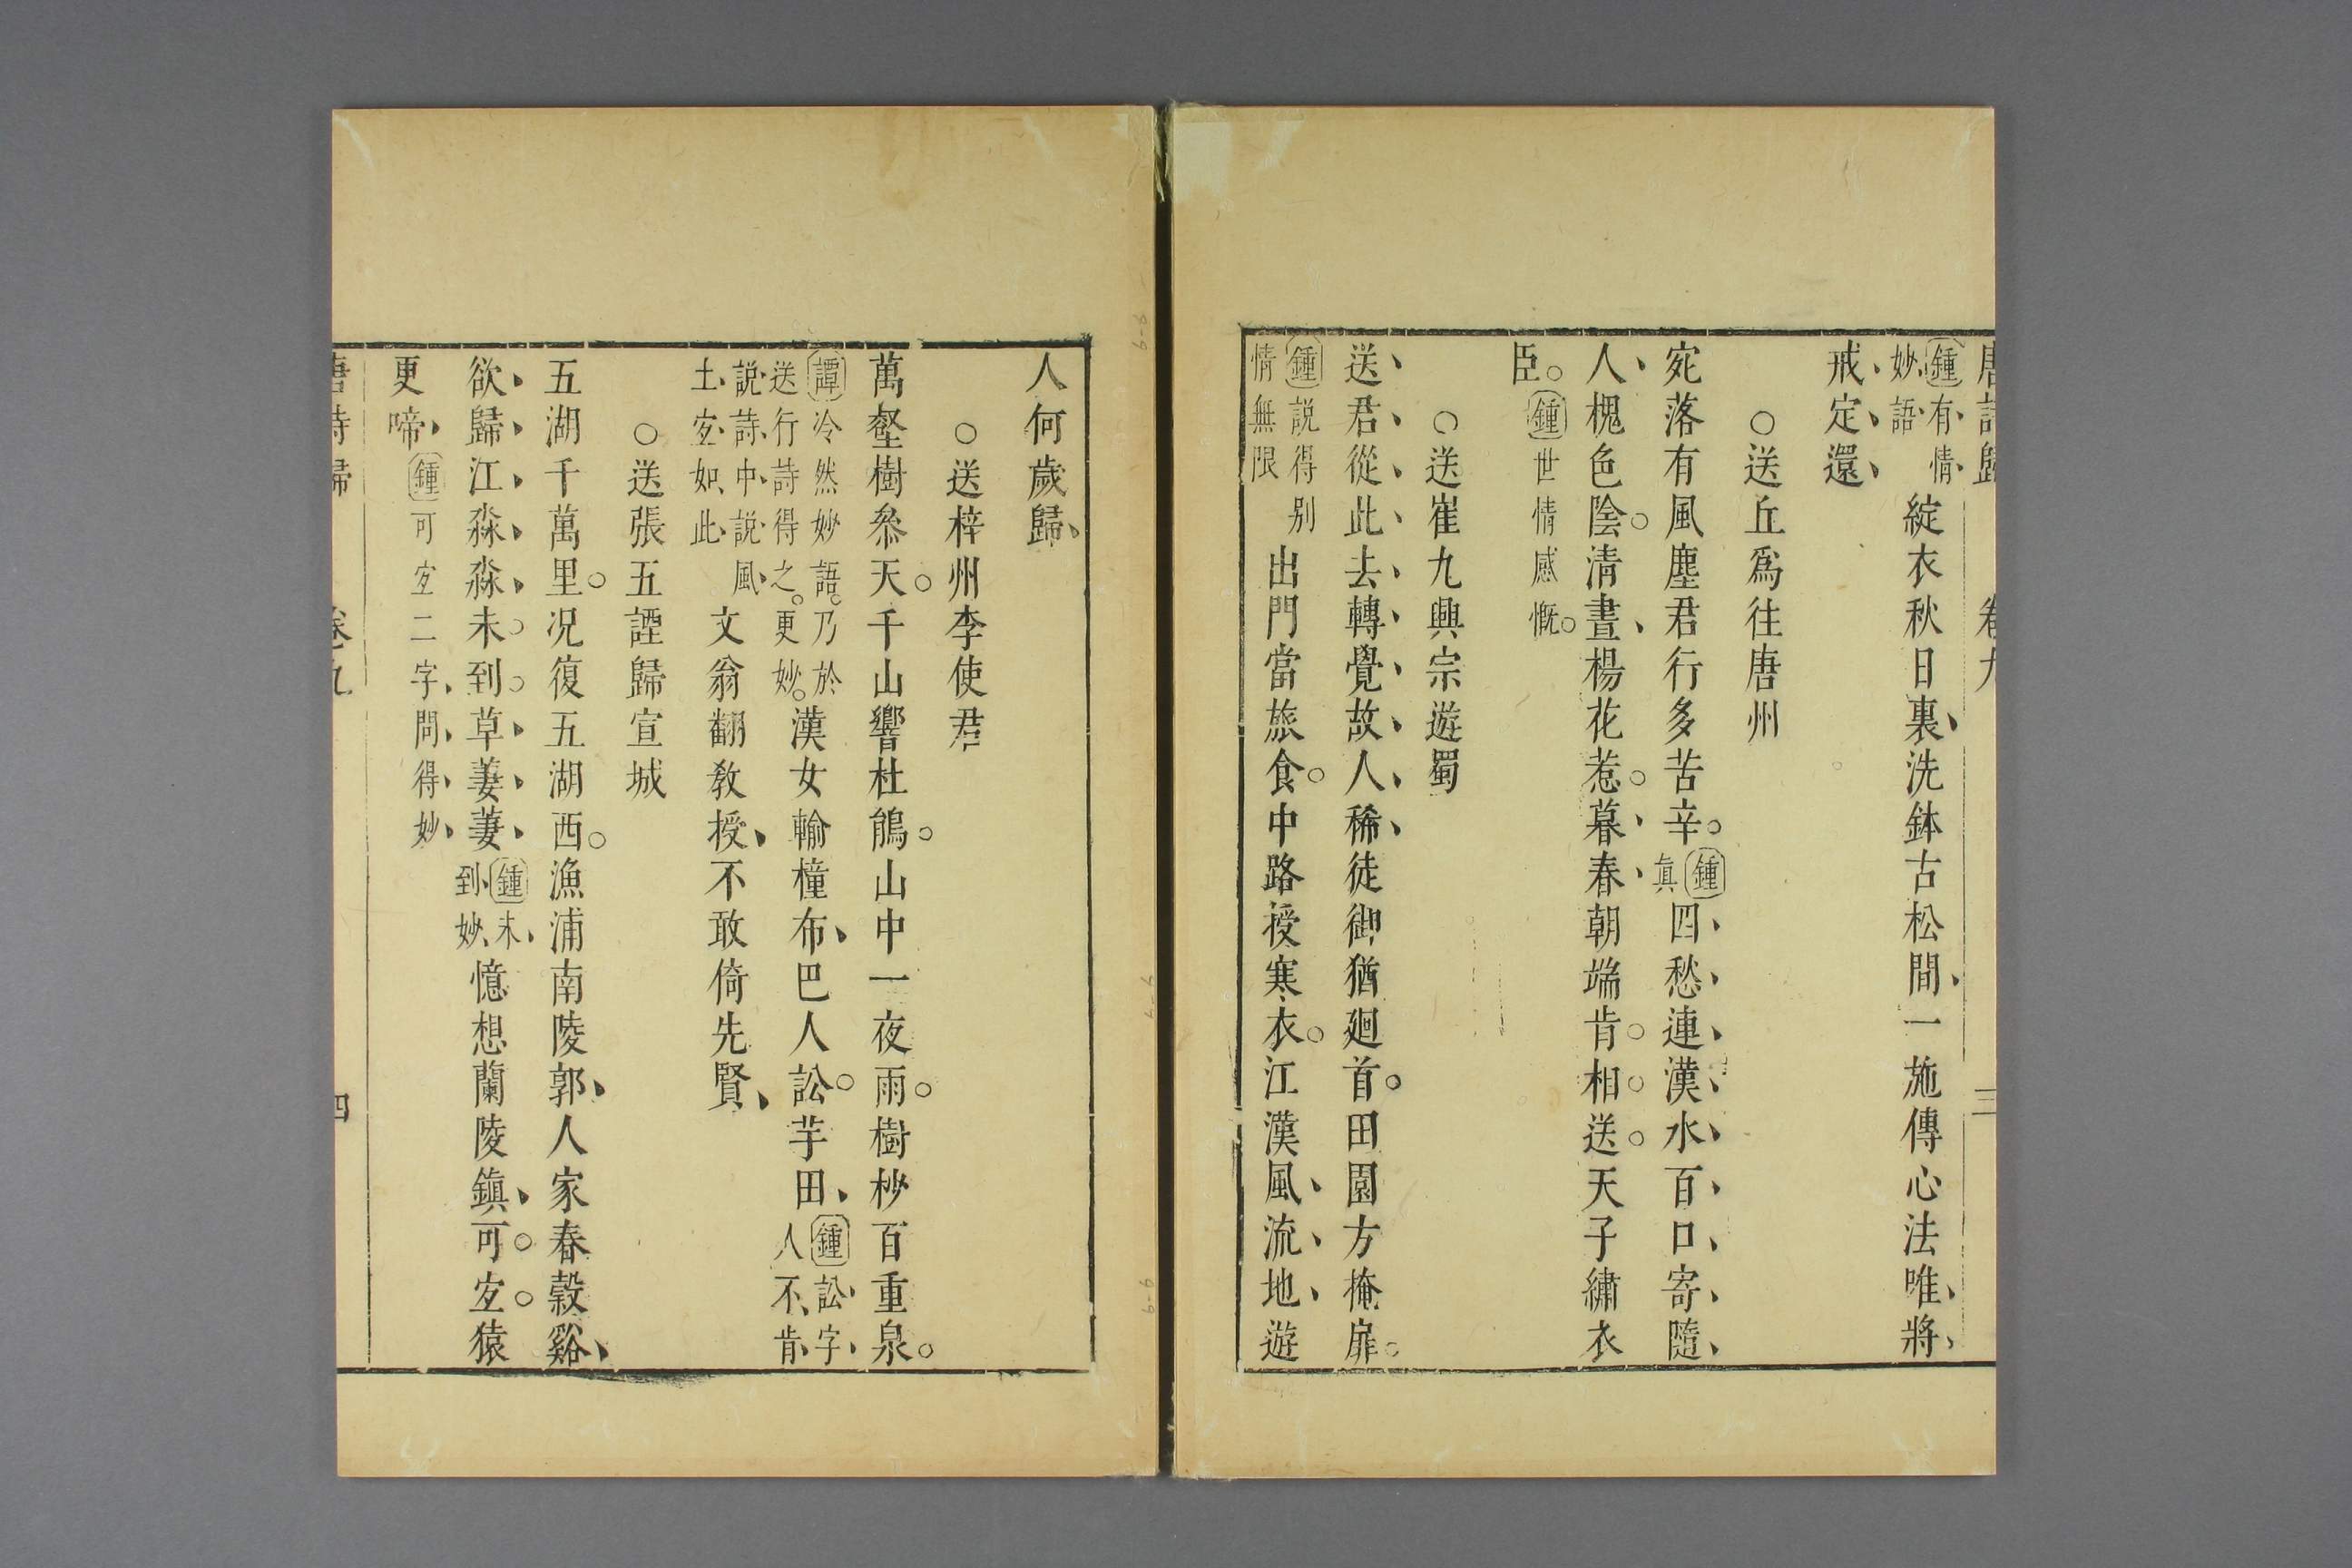 唐詩歸 卷九 三
鍾有情妙語綻衣秋日裏洗鉢古松間一施傳心法唯將
戒定還
○送丘爲往唐州
宛落有風塵君行多苦辛鍾真四愁連漢水百口寄隨
人槐色陰清晝楊花惹暮春朝端肯相送天子繡衣
臣鍾世情感慨
○送崔九興宗遊蜀
送君從此去轉覺故人稀徒御猶廻首田園方掩扉
鍾説得別情無限出門當旅食中路授寒衣江漢風流地遊
人何歲歸
○送梓州李使君
萬壑樹叅天千山響杜鵑山中一夜雨樹杪百重泉
譚冷然妙語乃於送行詩得之更妙漢女輸橦布巴人訟芋田鍾訟字人不肯
説詩中説風土宜如此文翁翻教授不敢倚先賢
○送張五諲歸宣城
五湖千萬里况復五湖西漁浦南陵郭人家春穀谿
欲歸江淼淼未到草萋萋鍾未到妙憶想蘭陵鎮可宐猿
更啼鍾可宐二字問得妙
唐詩歸 卷九 四